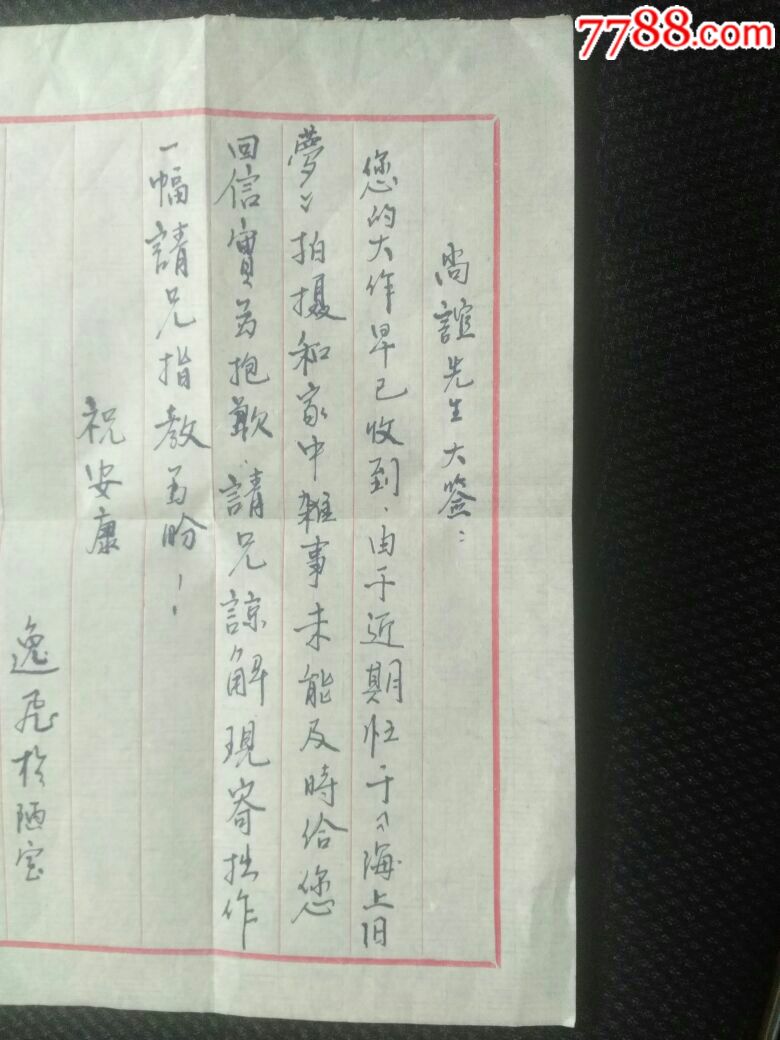 7788.com
尚誼先生大鉴：
您的大作早已收到，由于近期忙于《海上旧
夢》拍摄和家中雑事未能及時给您
回信實为抱歉，請兄諒解現寄拙作
一幅請兄指教为盼！
祝安康
逸飛於陋室